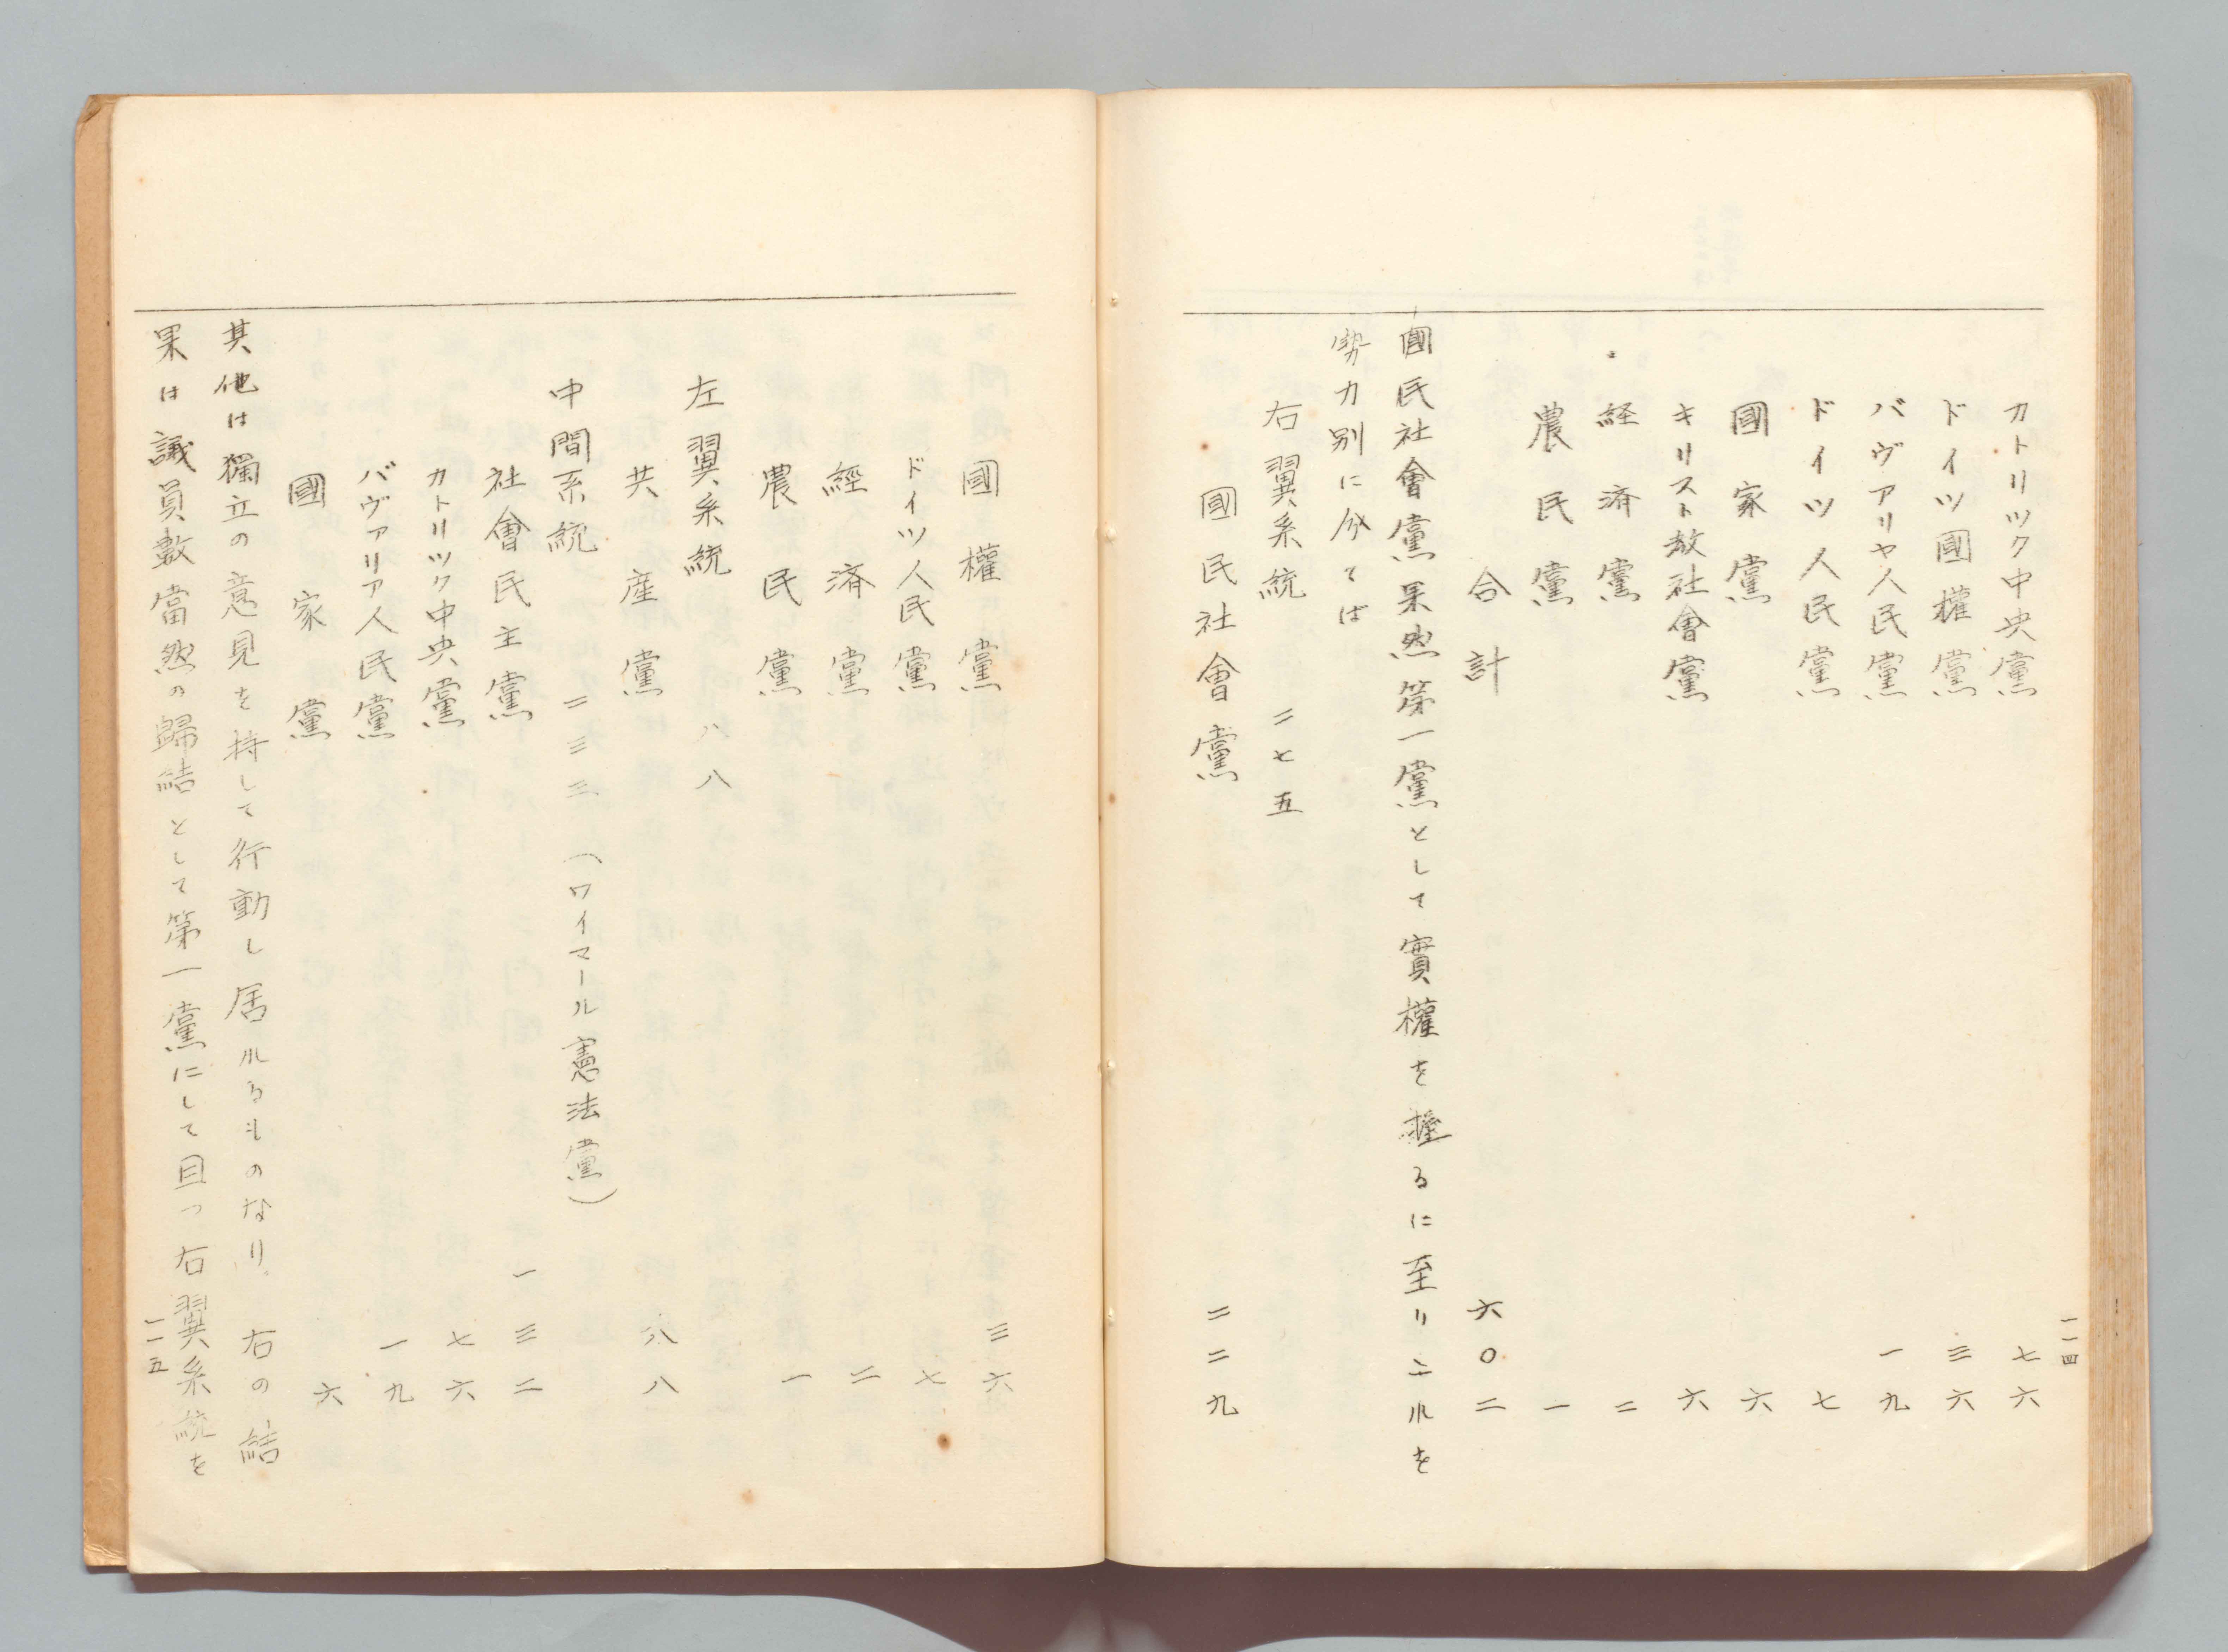 一一四
カトリック中央黨 七六
ドイツ國權黨 三六
バヴアリヤ人民黨 一九
ドイツ人民黨 七
國家黨 六
キリスト教社會黨 六
経済黨 二
農民黨 一
合計 六〇二
國民社會黨果然第一黨として實權を握るに至りこれを
勢力別に分てば
右翼系統 二七五
國民社會黨 二二九
國權黨 三六
ドイツ人民黨 七
經済黨 二
農民黨 一
左翼系統 八八
共産黨 八八
中間系統 二三三 (ワイマール憲法黨)
社會民主黨 一三二
カトリック中央黨 七六
バヴァリア人民黨 一九
國家黨 六
其他は獨立の意見を持して行動し居れるものなり、右の結
果は議員數當然の歸結として第一黨にして且つ右翼系統を
一一五